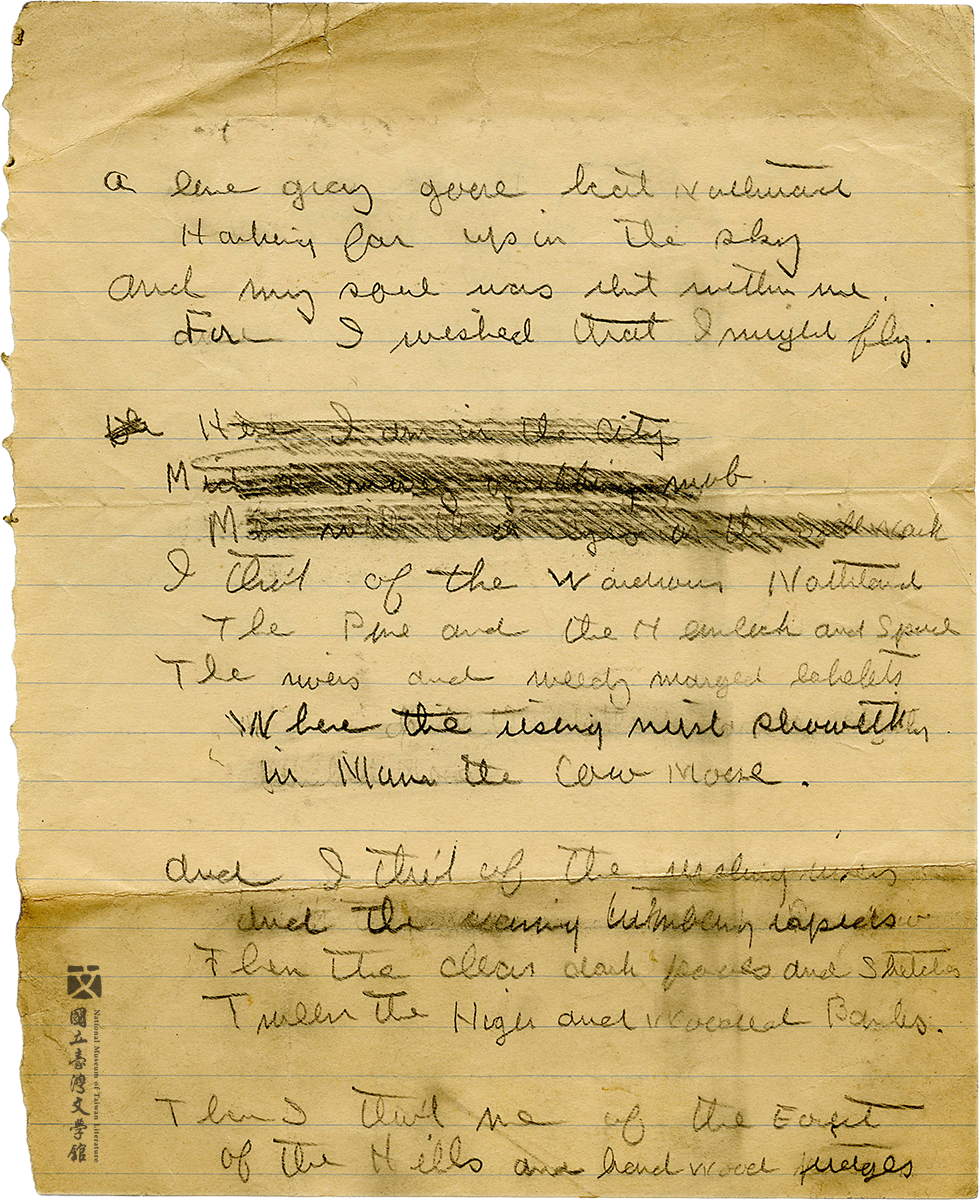 a lone gray goose beat Northward
Honking far up in the sky
And my soul was within me.
For I wished that I might fly.
Here I am in the city
Mid a mob.
M with the
I tho't of the Wondrous Northland
The Pine and the Hemlock and Spruce
The rivers and weedy marged lakelets
Where the rising mist showeth
in Mum the Cow Moose.
And I tho't of the rushing rivers
And the roaring tumbling rapids
Then the clear dark pools and Stretches
Tween the High and Wooded Banks.
Then I tho't me of the Forest
of the Hills and hard wood ridges
國立臺灣文學館
National Museum of Taiwan Literature